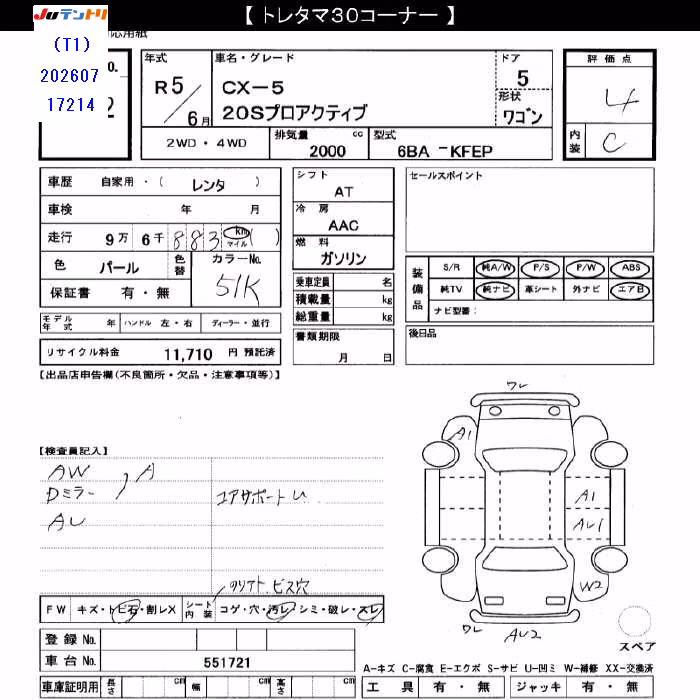 【 トレタマ30コーナー 】
JUテントリ
(T1)
202607
17214
応用紙
o.
2
年式
R5/6月
車名・グレード
CX-5
20Sプロアクティブ
ドア
5
形状
ワゴン
評価点
4
内装
C
2WD・4WD
排気量 cc
2000
型式
6BA -KFEP
車歴 自家用・( レンタ )
車検 年 月
走行 9万 6千 883 km マイル ( )
色 パール 色替 カラーNo.
51K
保証書 有・無
モデル年式 年 ハンドル 左・右 ディーラー・並行
リサイクル料金 11,710 円 預託済
シフト
AT
冷房
AAC
燃料
ガソリン
乗車定員 名
積載量 kg
総重量 kg
書類期限
月 日
セールスポイント
装備品
S/R 純A/W P/S P/W ABS
純TV 純ナビ 革シート 外ナビ エアB
ナビ型番:
後日品
【出品店申告欄(不良箇所・欠品・注意事項等)】
【検査員記入】
AW
Dミラー ) A
AU
コアサポートU
ワレ
A1
A1
AU1
W2
ワレ
AU2
スペア
FW キズ・トビ石・割レX
シート内装 コゲ・穴・汚レ・シミ・破レ・スレ
登録 No.
車台 No. 551721
車庫証明用 長さ cm 幅 cm 高さ cm
A-キズ C-腐食 E-エクボ S-サビ U-凹ミ W-補修 XX-交換済
工具 有・無 ジャッキ 有・無